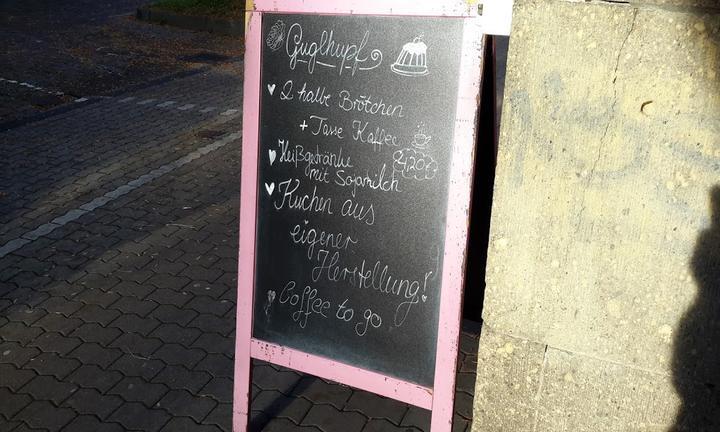 Guglhupf
2 halbe Brötchen
+ Tasse Kaffee
4,20€
Heißgetränke
mit Sojamilch
Kuchen aus
eigener
Herstellung!
Coffee to go